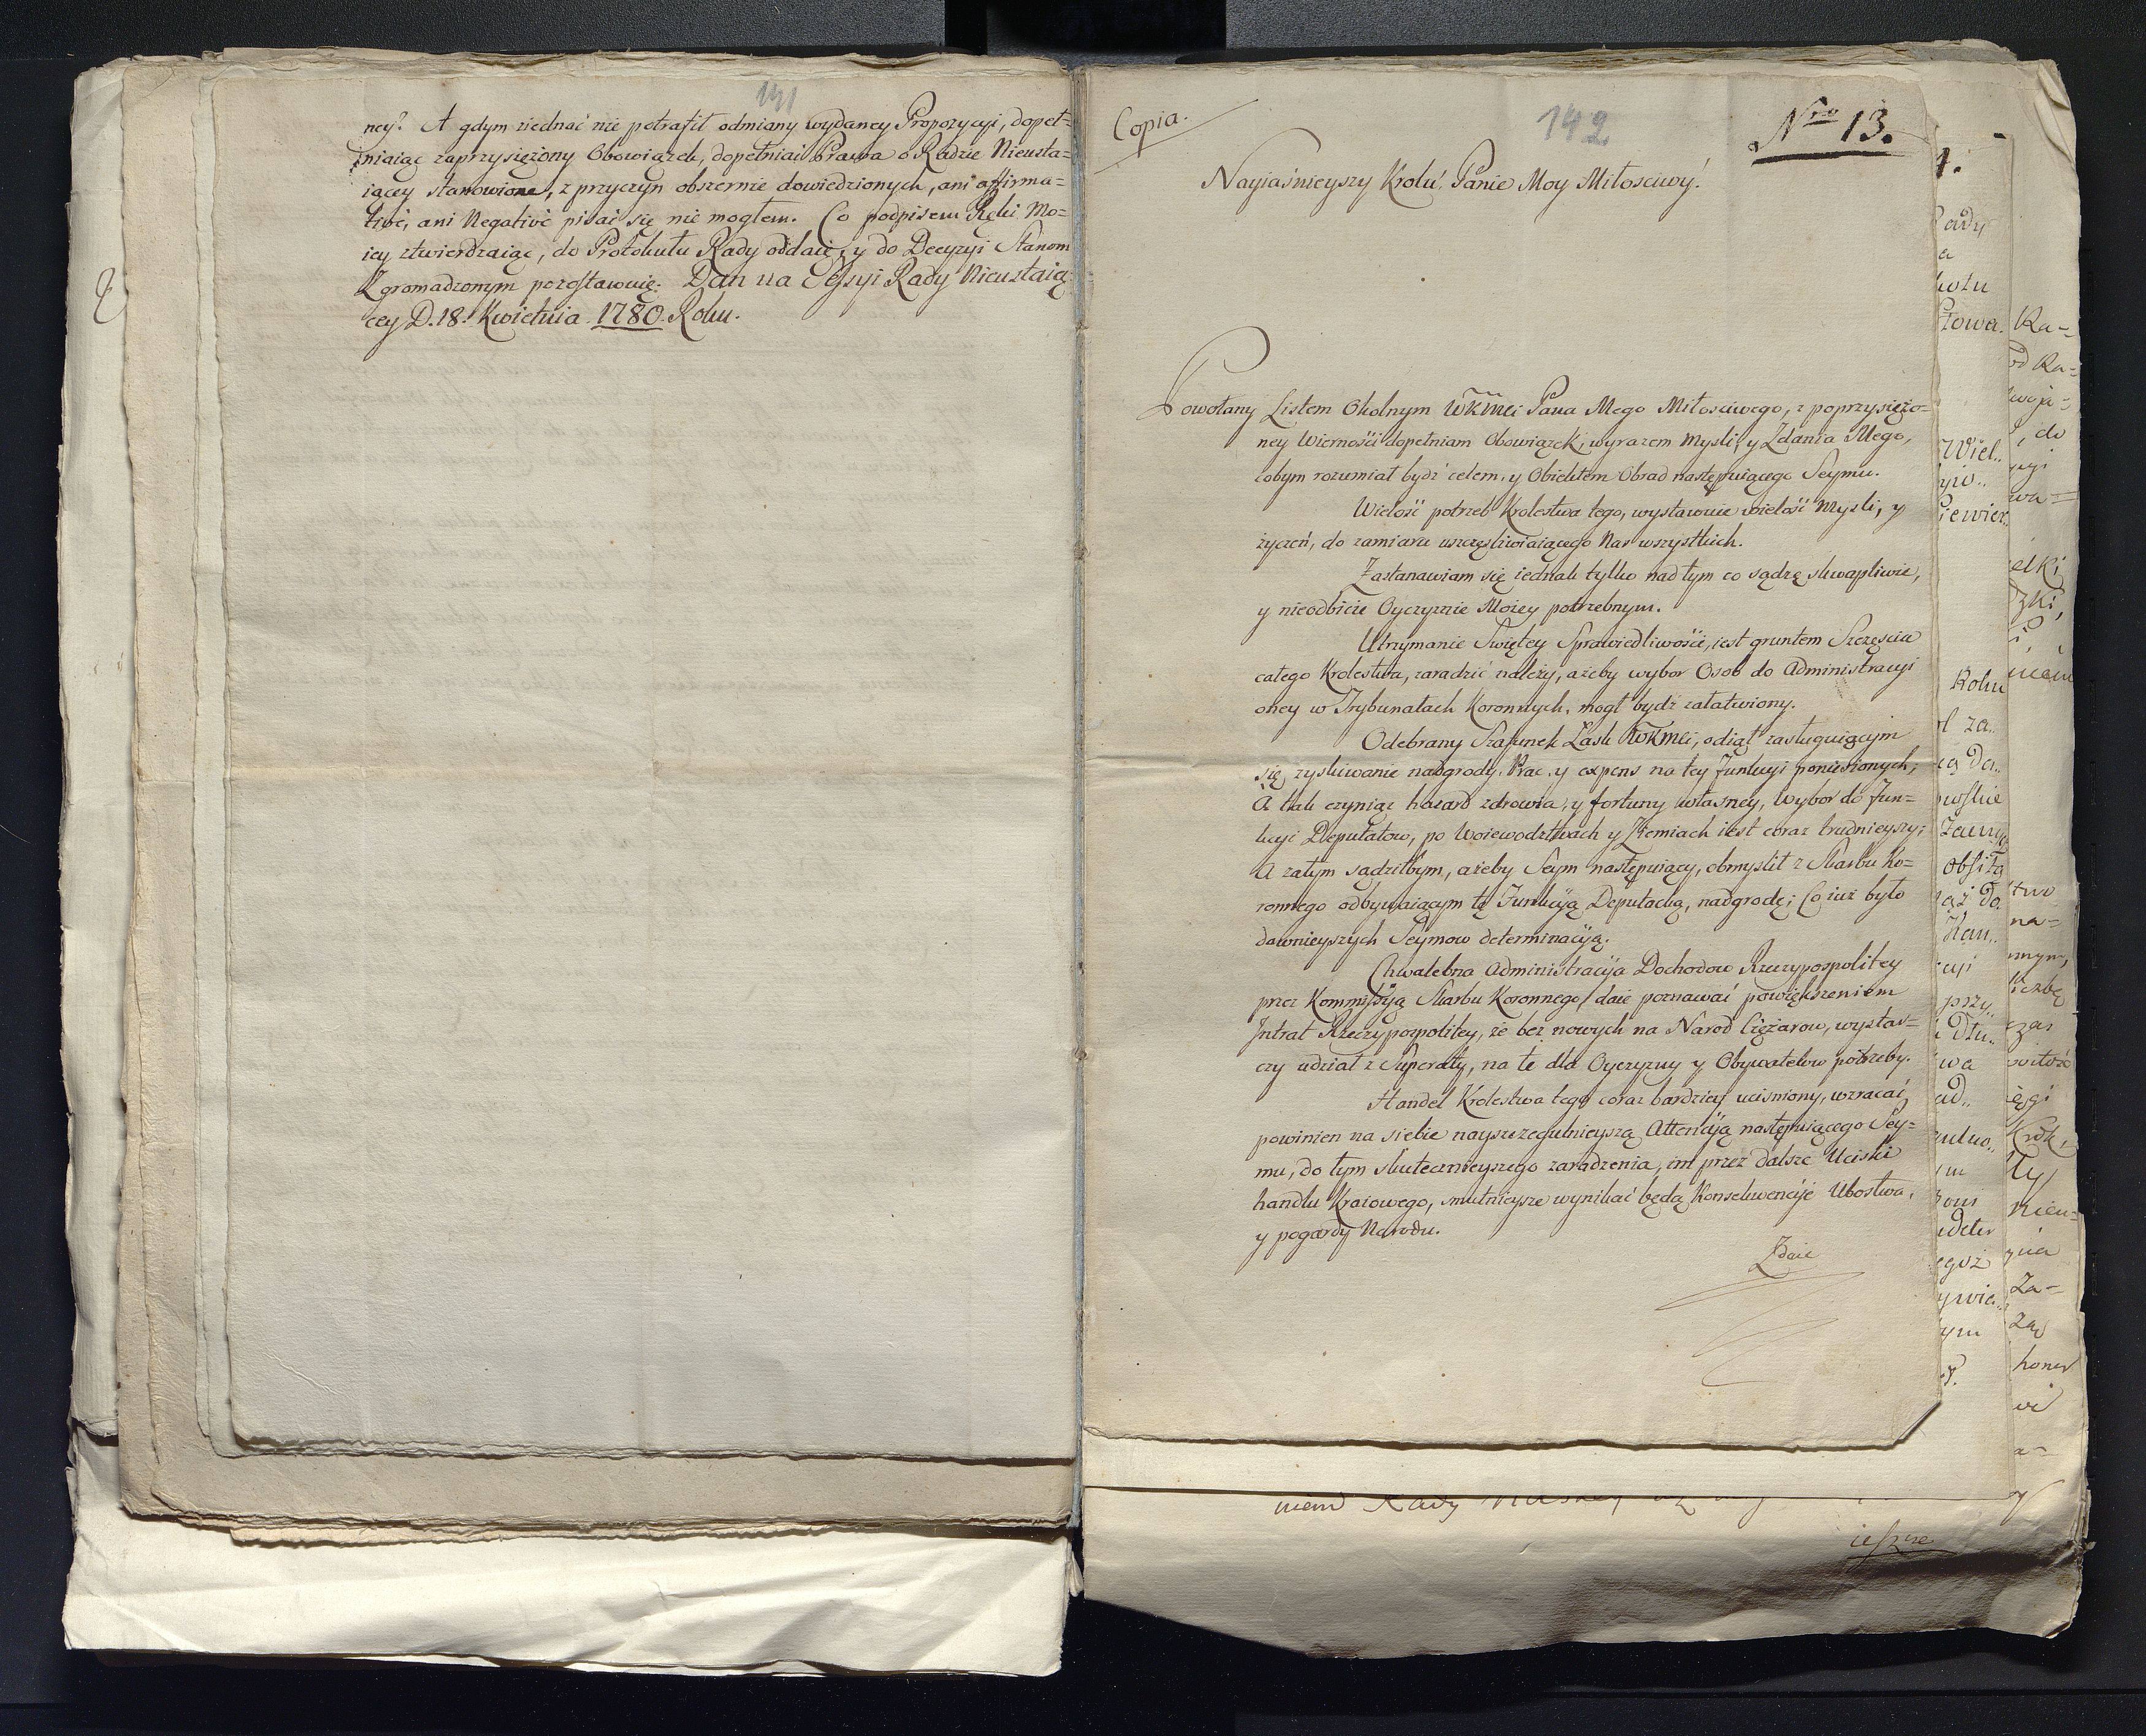 141
ney? A gdym ziednać nie potrafił odmiany wydaney Propozycyi, dopeł=
niaiąc zaprzysiężony Obowiązek, dopełniał Prawa o Radzie Nieusta=
iącey stanowione, z przyczyn obszernie dowiedzionych, ani affirma=
tivè, ani Negativè pisać się nie mogłem. Co podpisem Ręki Mo=
iey stwierdzaiąc, do Protokułu Rady oddaię, y do Decyzyi Stanom
Zgromadzonym pozostawuię. Dan na Sessyi Rady Nieustaią
cey D. 18. Kwietnia 1780. Roku.
Copia.
142
Nro 13.
Nayiaśnieyszy Krolu, Panie Moy Miłosciwy!
Powołany Listem Okolnym WKMci Pana Mego Miłosciwego, z poprzysiężo=
ney Wiernośći dopełniam Obowiązek, wyrazem Mysli, y Zdania Mego,
cobym rozumiał bydź celem, y Obiektem Obrad następuiącego Seymu.
Wielość potrzeb Krolestwa tego, wystawuie wielość Mysli, y
życzeń, do zamiaru uszczęsliwiaiącego Nas wszystkich.
Zastanawiam się iednak tylko nad tym co sądzę skwapliwie,
y nieodbicie Oyczyznie Moiey potrzebnym.
Utrzymanie Swiętey Sprawiedliwośći, iest gruntem Szczęscia
całego Krolestwa, zaradzić należy, ażeby wybor Osob do Administracyi
oney w Trybunałach Koronnych, mogł bydź załatwiony.
Odebrany Szafunek Łask WKMci, odiął zasługuiącym
się, zyskiwanie nadgrody, Prac, y expens na tey Funkcyi poniesionych;
A tak czyniąc hazard zdrowia, y fortuny własney, Wybor do Fun=
kcyi Deputatow, po Woiewodztwach y Ziemiach iest coraz trudnieyszy;
A zatym sądziłbym, ażeby Seym następuiący, obmyslił z Skarbu Ko=
ronnego odbywaiącym tę Funkcyą Deputacką, nadgrodę; Co iuż było
dawnieyszych Seymow determinacyą.
Chwalebna Administracyia Dochodow Rzeczypospolitey
przez Kommissyą Skarbu Koronnego daie poznawać powiększeniem
Intrat Rzeczypospolitey, że bez nowych na Narod Ciężarow, wystar=
czy udział z Superaty, na te dla Oyczyzny y Obywatelow potrzeby.
Handel Krolestwa tego coraz bardziey ucisniony, wzracać
powinien na siebie nayszczegulnieyszą Attencyją następuiącego Sey=
mu, do tym skutecznieyszego zaradzenia, im przez dalsze Uciski
handlu Kraiowego, smutnieysze wynikać będą Konsekwencyje Ubostwa,
y pogardy Narodu.
Zdaie
ieszcze